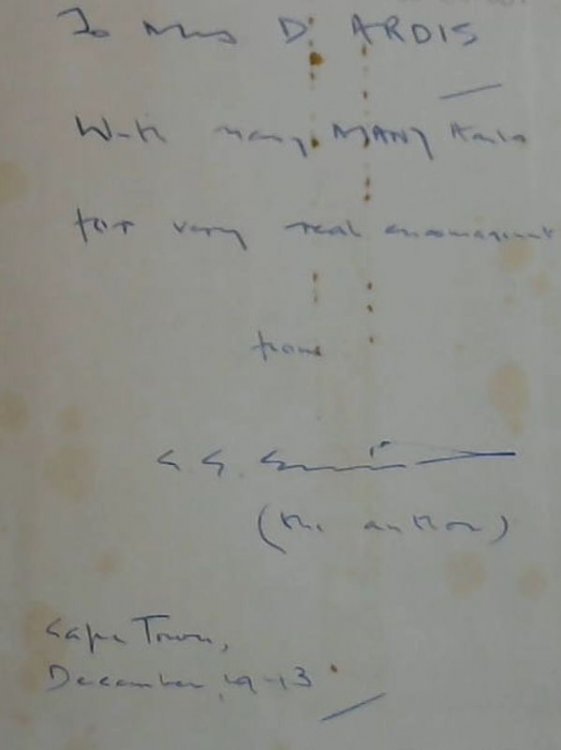 To Mrs D ARDIS
With many MANY thanks
for very real encouragement
from
(the author)
Cape Town,
December,